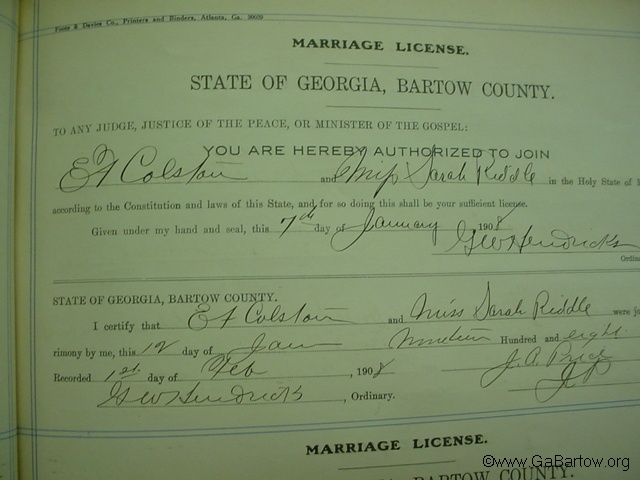 Foote & Davies Co., Printers and Binders, Atlanta, Ga.
MARRIAGE LICENSE.
STATE OF GEORGIA, BARTOW COUNTY.
TO ANY JUDGE, JUSTICE OF THE PEACE, OR MINISTER OF THE GOSPEL:
YOU ARE HEREBY AUTHORIZED TO JOIN
E F Colston and Miss Sarah Riddle in the Holy State of
according to the Constitution and laws of this State, and for so doing this shall be your sufficient license.
Given under my hand and seal, this 7th day of January 1908
GW Hendricks
Ordin
STATE OF GEORGIA, BARTOW COUNTY.
I certify that E F Colston and Miss Sarah Riddle were jo
rimony by me, this 12 day of Jan Nineteen Hundred and eight
Recorded 1st day of Feb, 1908 J. A. Price
GW Hendricks, Ordinary. JP
MARRIAGE LICENSE.
BARTOW COUNTY.
©www.GaBartow.org